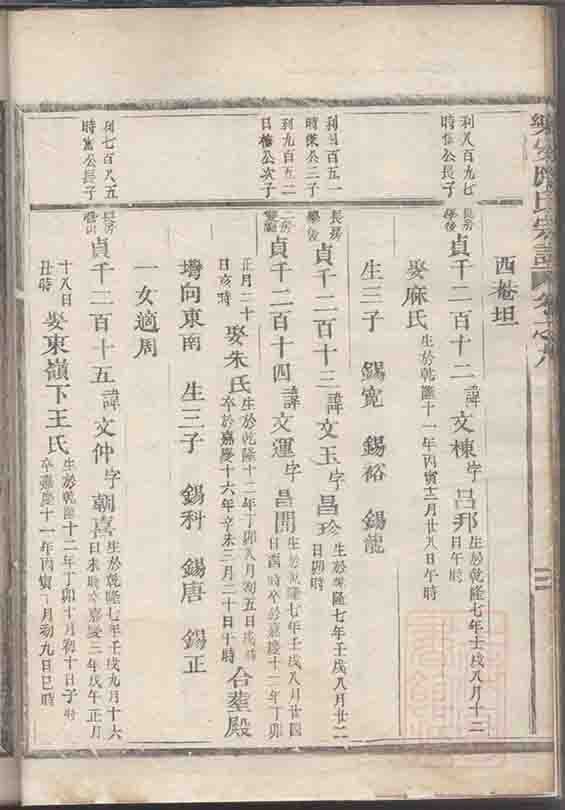 西巷坦
利八百九七
時 公長子
長房
學後
貞千二百十二諱文棟字呂邦生於乾隆七年壬戌八月十二
日午時
娶麻氏生於乾隆十一年丙寅十二月廿八日午時
生三子 錫寬 錫裕 錫龍
利 百五一
時榮公三子
長房
學後
貞千二百十三諱文玉字昌珍生於乾隆七年壬戌八月廿二
日卯時
利九百五二
日 公次子
二房
貞千二百十四諱文運字昌開生於乾隆七年壬戌八月廿四
日酉時卒於嘉慶十二年丁卯
正月二十
日亥時
娶朱氏生於乾隆十二年丁卯八月初五日戌時
卒於嘉慶十六年辛未三月二十日午時
合葬殿
塆向東南 生三子 錫科 錫唐 錫正
一女適周
利七百八五
時 公長子
長房
貞千二百十五諱文仲字朝喜生於乾隆七年壬戌九月十六
日未時卒嘉慶三年戊午正月
十八日
丑時
娶東嶺下王氏生於乾隆十二年丁卯十月初十日子時
卒嘉慶十一年丙寅 月初九日巳時